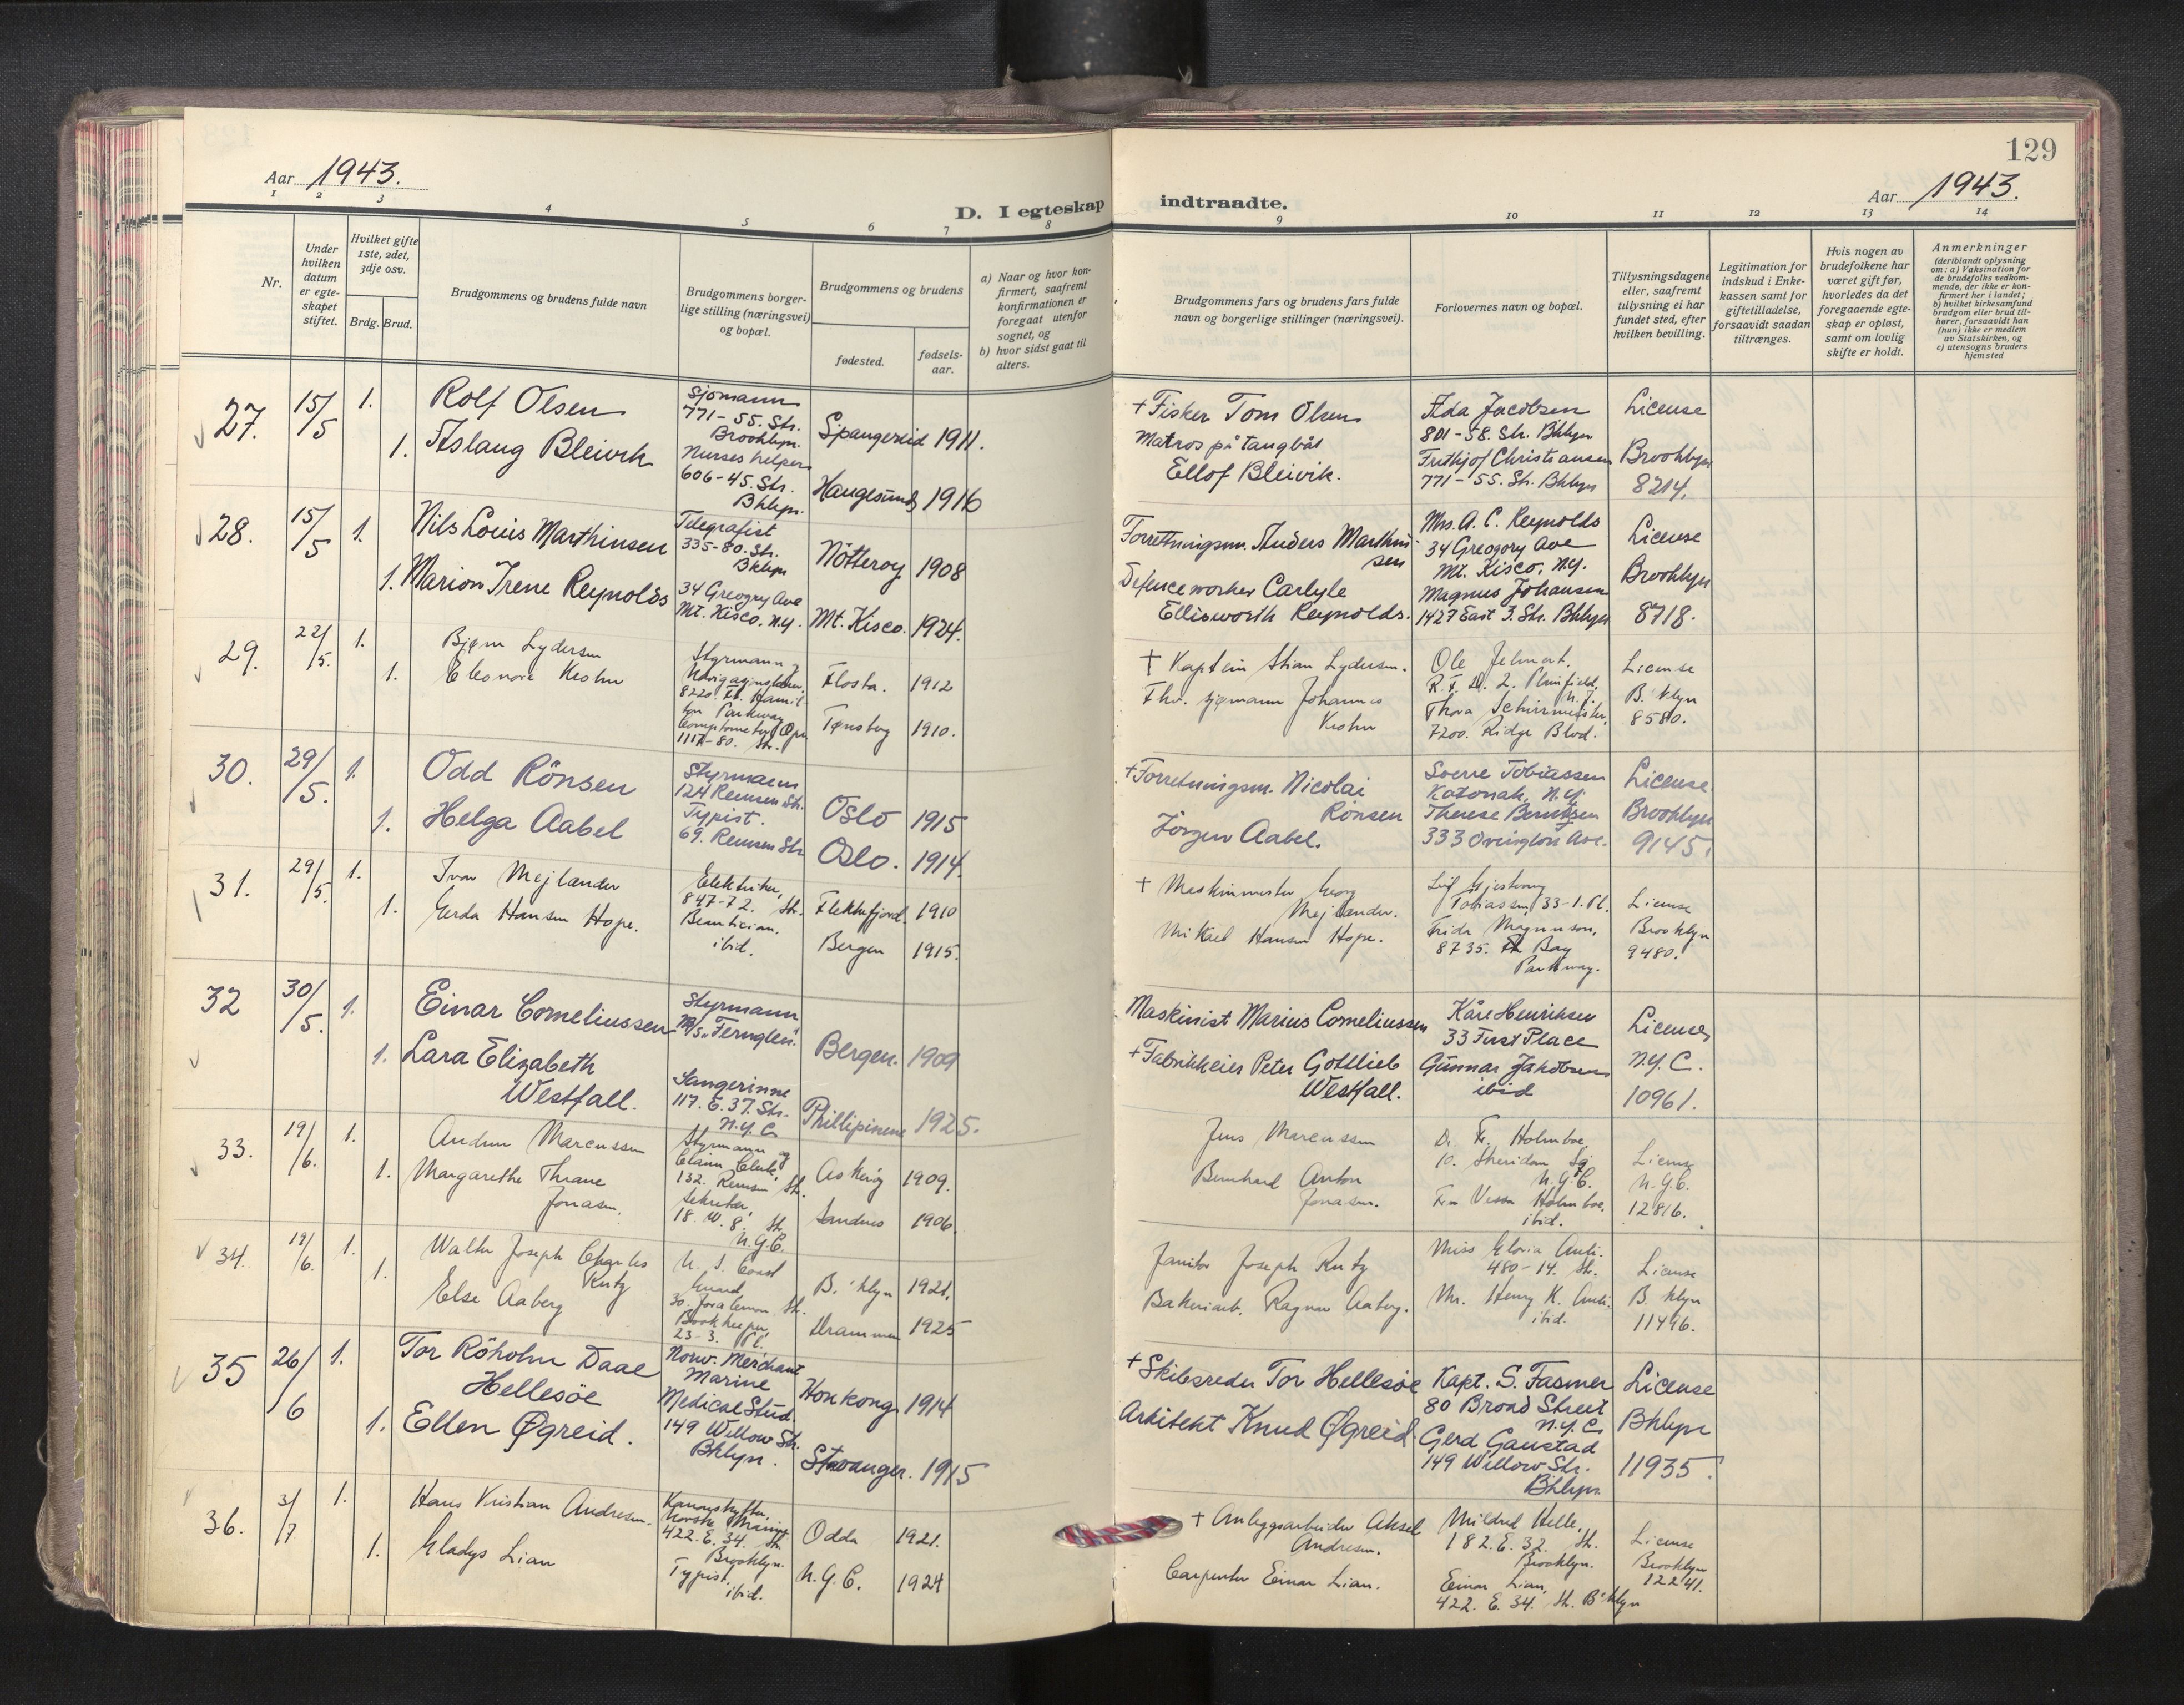 129
Aar 1943.
Aar 1943.
D. I egteskap indtraadte.
1 2 3 4 5 6 7 8 9 10 11 12 13 14
Nr.
Under hvilken datum er egte-skapet stiftet.
Hvilket gifte 1ste, 2det, 3dje osv.
Brdg. Brud.
Brudgommens og brudens fulde navn
Brudgommens borger-lige stilling (næringsvei) og bopæl.
Brudgommens og brudens
fødested.
fødsels-aar.
a) Naar og hvor kon-firmert, saafremt konfirmationen er foregaat utenfor sognet, og
b) hvor sidst gaat til alters.
Brudgommens fars og brudens fars fulde navn og borgerlige stillinger (næringsvei).
Forlovernes navn og bopæl.
Tillysningsdagene eller, saafremt tillysning ei har fundet sted, efter hvilken bevilling.
Legitimation for indskud i Enke-kassen samt for giftetilladelse, forsaavidt saadan tiltrænges.
Hvis nogen av brudefolkene har været gift før, hvorledes da det foregaaende egte-skap er opløst, samt om lovlig skifte er holdt.
Anmerkninger (deriblandt oplysning om: a) Vaksination for de brudefolks vedkom-mende, der ikke er kon-firmert her i landet; b) hvilket kirkesamfund brudgom eller brud til-hører, forsaavidt han (hun) ikke er medlem av Statskirken, og c) utensogns bruders hjemsted
27. 15/5 1. Rolf Olsen
Sjömann
771-55. Str.
Brooklyn.
Spangereid 1911.
+ Fisker Tom Olsen
Ada Jacobsen
801-58. Str. Bklyn
License
1. Aslaug Bleivik
Nurses helper
606-45. Str.
Bklyn.
Haugesund 1916
Matros på taugbåt
Ellof Bleivik.
Frithjof Christiansen
771-55. Str. Bklyn
Brooklyn
8214.
28. 15/5 1. Nils Louis Marthinsen
Telegrafist
335-80. Str.
Bklyn
Nötteroy 1908
Forretningsm. Anders Marthinsen
Mrs. A. C. Reynolds
34 Greogory Ave
Mt. Kisco. N.y.
License
1. Marion Irene Reynolds
34 Greogry Ave
Mt. Kisco. N.y.
Mt. Kisco. 1924.
Defence worker Carlyle
Ellisworth Reynolds.
Magnus Johansen
1427 East 3. Str. Bklyn
Brooklyn
8718.
29. 22/5. 1. Bjørn Lydersen
Styrmann
8220. Ft. Hamil
ton Parkway
Flosta. 1912
+ Kaptein Stian Lydersen.
Ole Jelmert,
R.F.D. 2. Plainfield,
N.J.
License
1. Eleonore Krohn
Comptometer Oper
1117-80. Str.
Tønsberg 1910.
Fhv. sjømann Johannes
Krohn
Thora Schirrmeister.
7200. Ridge Blvd.
B.klyn
8580.
30. 29/5. 1. Odd Rönsen
Styrmann
124 Remsen Str.
Oslo 1915
+ Forretningsm. Nicolai
Rönsen
Sverre Tobiassen
Katonah, N.y.
License
1. Helga Aabel
Typist.
69. Remsen Str
Oslo. 1914.
Jörgen Aabel.
Therese Berntzen
333 Ovington Ave.
Brooklyn
9145.
31. 29/5. 1. Ivar Mejlander
Elektriker,
847-72. Str.
Flekkefjord. 1910
+ Maskinmester Georg
Mejlander.
Tobiassen, 33-1. Pl.
License
1. Gerda Hansen Hope.
Beautician.
ibid.
Bergen 1915.
Mikael Hansen Hope.
Frida Magnuson,
8735. Bay
Parkway.
Brooklyn
9480.
32 30/5. 1. Einar Corneliussen
Styrmann
M/S. "Fernglen".
Bergen. 1909
Maskinist Marius Corneliussen
Kåre Henriksen
33 First Place
License
1. Lara Elizabeth
Westfall.
Sangerinne
117. E. 37. Str.
N.y.C.
Phillipinene 1925.
+ Fabrikkeier Peter Gottlieb
Westfall.
Gunnar Jakobsen
ibid
N.y.C.
10961.
33. 19/6. 1. Anders Marcussen
Styrmann og
Claim Clerk,
132. Remsen Str.
Askerøy 1909.
Jens Marcussen
Dr. Fr. Holmboe,
10. Sheridan Sq
N.Y.C.
License
1. Margarethe Thrane
Jonasen.
Sekretær,
18. W. 8. Str
N.Y.C.
Sandnes 1906.
Bernhard Anton
Jonasen.
Holmboe,
ibid.
N.Y.C.
12816.
34. 19/6. 1. Walter Joseph Charles
Rutz
U. S. Coast
Guard
30. Joralemon Str.
B.'klyn 1921.
Janitor Joseph Rutz
Miss Gloria Anti.
480-14. Str.
License
1. Else Aaberg
Bookkeeper,
23-3. Pl.
Drammen 1925
Bakeriarb. Ragnar Aaberg.
Mr. Henry K. Anti.
ibid.
B.klyn
11496.
35 26/6 1. Tor Röholm Daae
Hellesöe
Norw. Merchant
Marine
Honkong 1914
+ Skibsreder Tor Hellesöe
Kapt. S. Fasmer
80 Broad Street
N.y.C.
License
1. Ellen Øgreid.
Medical Stud.
149 Willow Str.
Bklyn.
Stavanger. 1915
Arkitekt Knud Øgreid.
Gerd Gaustad
149 Willow Str.
Bklyn.
Bklyn
11935.
36. 3/7 1. Hans Kristian Andresen.
Kanonskytter,
Norske Marine
422. E. 34. Str.
Brooklyn.
Odda 1921.
+ Anleggsarbeider Aksel
Andresen.
Mildred Helle,
182. E. 32. Str.
Brooklyn.
License
1. Gladys Lian
Typist.
ibid.
N.Y.C. 1924
Carpenter Einar Lian.
Einar Lian,
422. E. 34. Str. B'klyn
Brooklyn
12241.